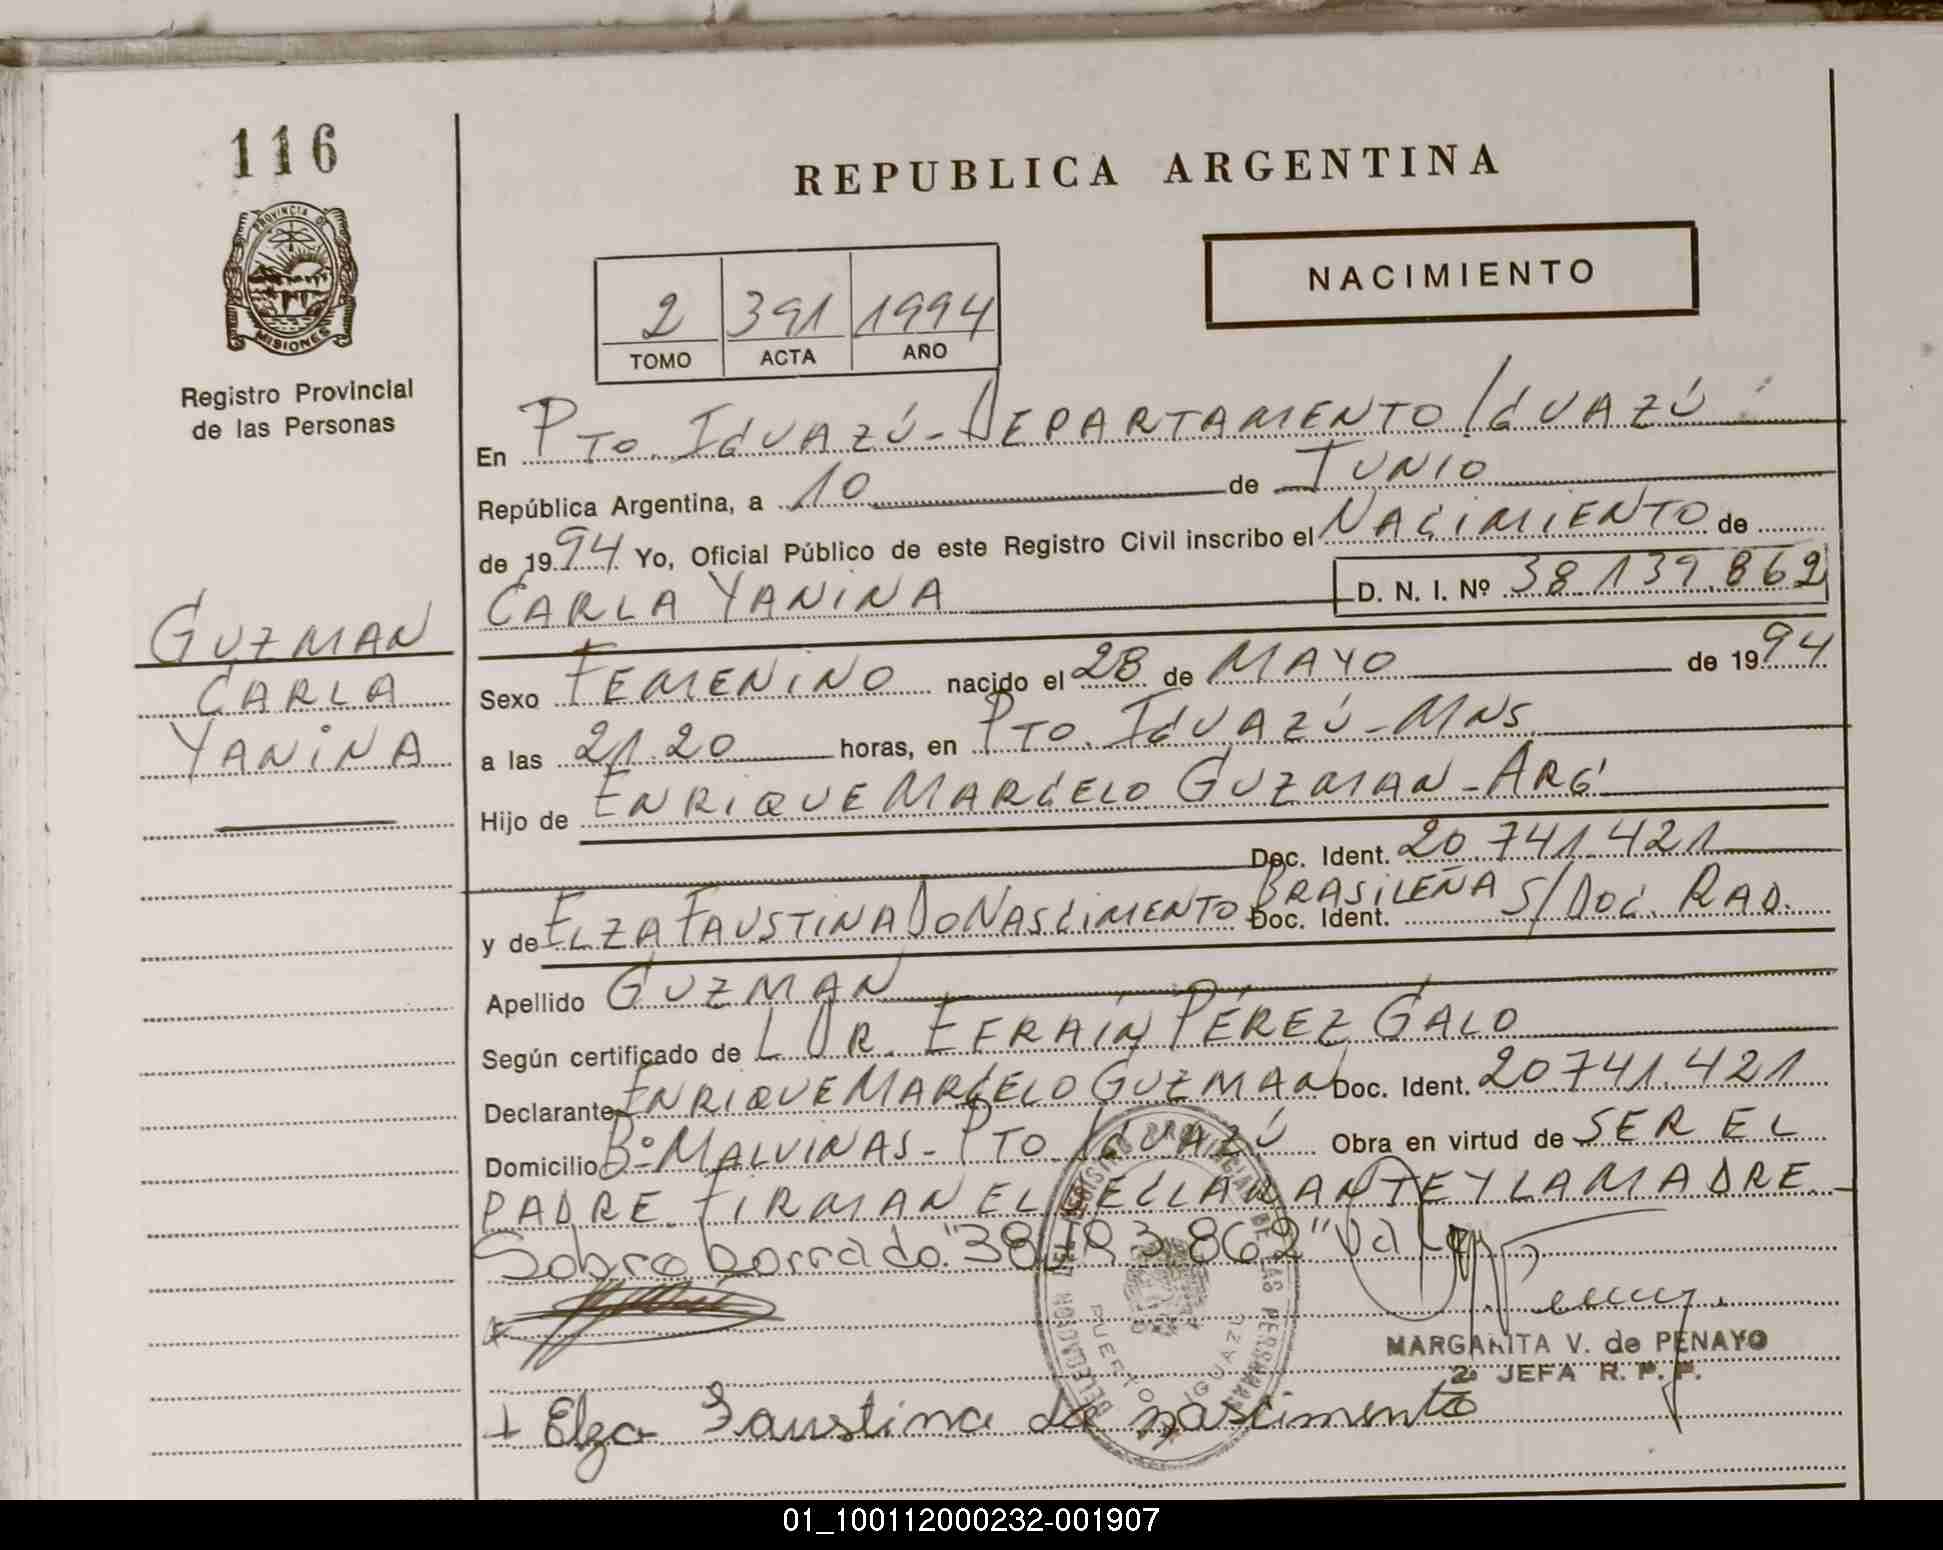 116
PROVINCIA DE
MISIONES
Registro Provincial
de las Personas
GUZMAN
CARLA
YANINA
REPUBLICA ARGENTINA
2 391 1994
TOMO ACTA AÑO
NACIMIENTO
En PTO. IGUAZÚ - DEPARTAMENTO IGUAZÚ
República Argentina, a 10 de JUNIO
de 1994 Yo, Oficial Público de este Registro Civil inscribo el NACIMIENTO de
CARLA YANINA D. N. I. Nº 38.139.862
Sexo FEMENINO nacido el 28 de MAYO de 1994
a las 21.20 horas, en PTO. IGUAZÚ - MNS.
Hijo de ENRIQUE MARCELO GUZMAN - ARG.
Doc. Ident. 20.741.421
y de ELZA FAUSTINA DO NASCIMENTO BRASILEÑA Doc. Ident. S/DOC. RAD.
Apellido GUZMAN
Según certificado de L DR. EFRAÍN PÉREZ GALO
Declarante ENRIQUE MARCELO GUZMAN Doc. Ident. 20.741.421
Domicilio Bº MALVINAS - PTO. IGUAZÚ Obra en virtud de SER EL
PADRE. FIRMAN EL DECLARANTE Y LA MADRE.
Sobre borrado: "38 862" Vale
MARGARITA V. de PENAYO
2ª JEFA R. P. P.
+ Elza Faustina do nascimento
DELEGACION DEL REGISTRO PROVINCIAL DE LAS PERSONAS
PUERTO IGUAZU
01_100112000232-001907